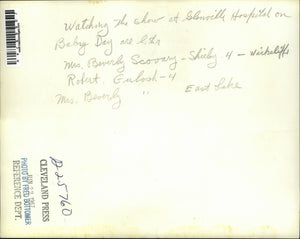 Watching the show at Glenville Hospital on
Baby Day are L to r
Mrs. Beverly - Shirley 4 - Wickliffe
Robert - 4
Mrs. Beverly " East Lake
D-25760
CLEVELAND PRESS
JUN 22 1967
PHOTO BY FRED BOTTOMER
REFERENCE DEPT.